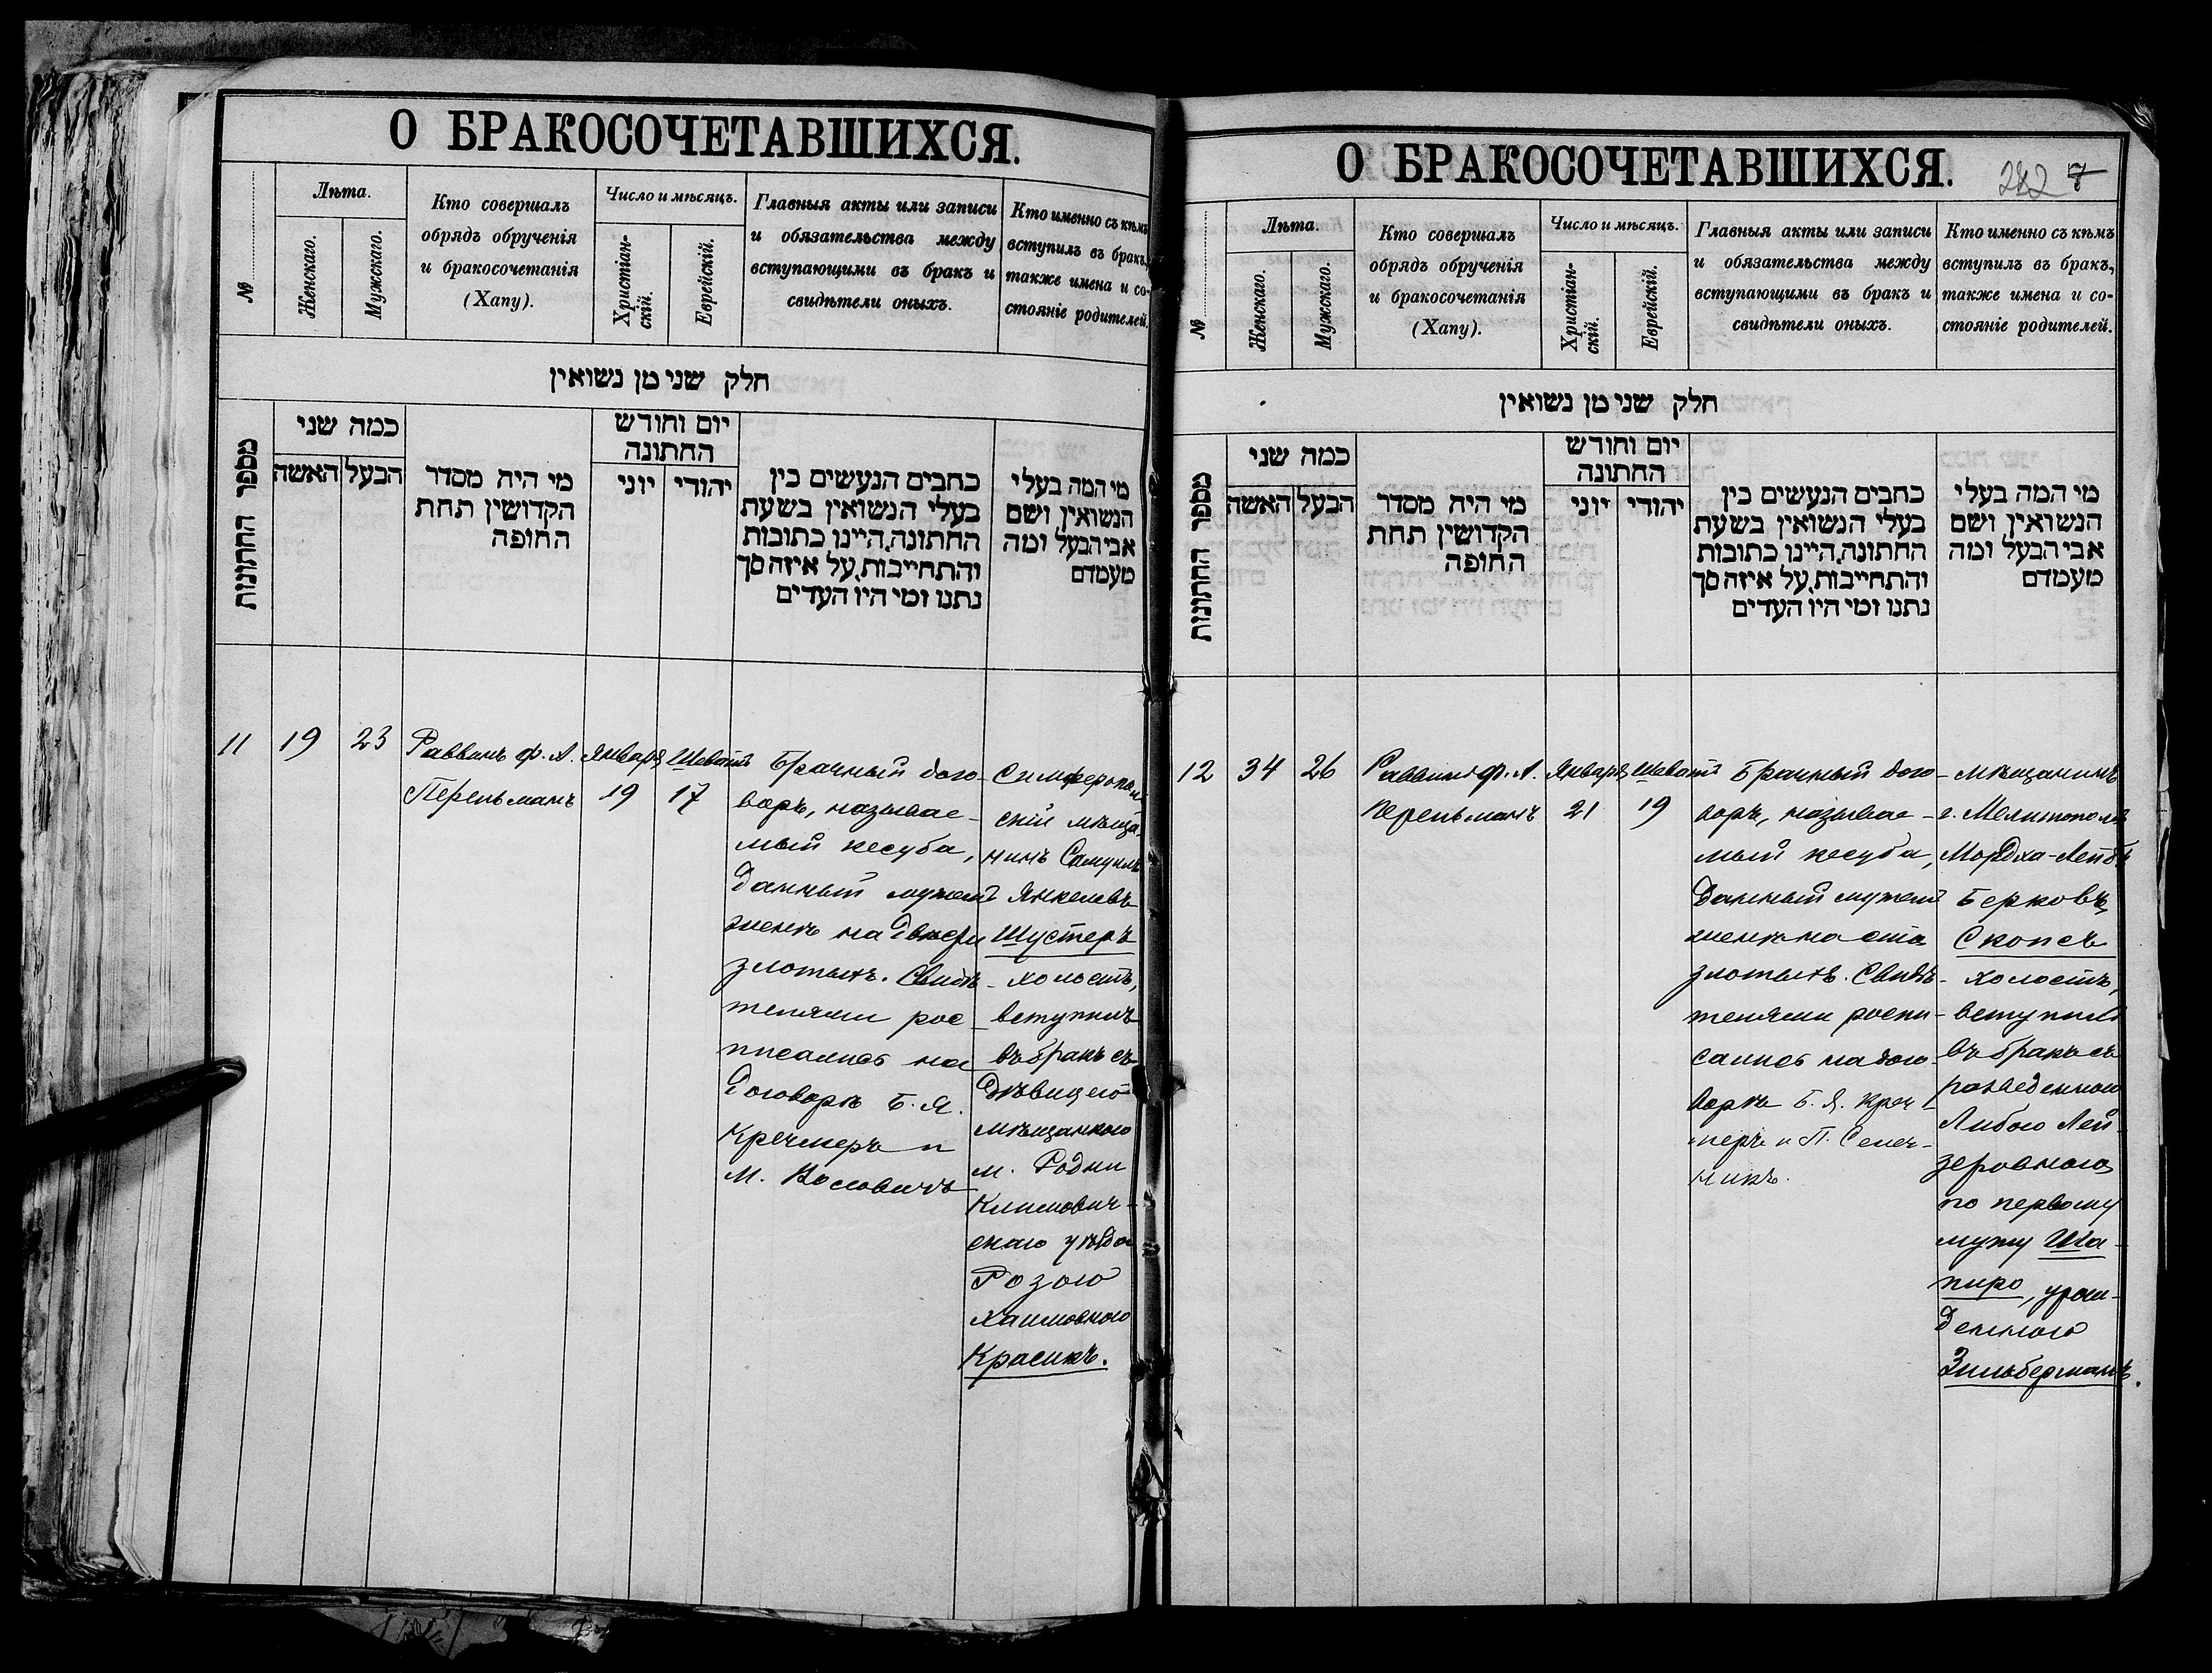 О БРАКОСОЧЕТАВШИХСЯ.
№
Лѣта.
Женскаго.
Мужскаго.
Кто совершалъ
обрядъ обрученія
и бракосочетанія
(Хапу).
Число и мѣсяцъ.
Христіан-
скій.
Еврейскій.
Главныя акты или записи
и обязательства между
вступающими въ бракъ и
свидѣтели оныхъ.
Кто именно съ кѣмъ
вступилъ въ бракъ,
также имена и со-
стояніе родителей.
חלק שני מן נשואין
מספר החתונות
כמה שני
האשה
הבעל
מי היה מסדר
הקדושין תחת
החופה
יום וחודש
החתונה
יוני
יהודי
כתבים הנעשים בין
בעלי הנשואין בשעת
החתונה, היינו כתובות
והתחייבות, על איזה סך
נתנו ומי היו העדים
מי המה בעלי
הנשואין, ושם
אבי הבעל ומה
מעמדם
11
19
23
Раввинъ Ф. А.
Перельманъ
Января
19
Шеватъ
17
Брачный дого-
воръ, называе-
мый кесуба,
данный мужемъ
женѣ на двѣсти
злотыхъ. Свидѣ-
телями рос-
писались на
договорѣ Б. Я.
Кречмеръ и
М. Восовичъ
Симферополь-
скій мѣща-
нинъ Самуилъ
Янкелевъ
Шустеръ
холостъ,
вступилъ
въ бракъ съ
дѣвицею
мѣщанкою
м. Родни
Климович-
скаго уѣзда
Розою
Хаимовною
Красикъ.
О БРАКОСОЧЕТАВШИХСЯ.
242 7
№
Лѣта.
Женскаго.
Мужскаго.
Кто совершалъ
обрядъ обрученія
и бракосочетанія
(Хапу).
Число и мѣсяцъ.
Христіан-
скій.
Еврейскій.
Главныя акты или записи
и обязательства между
вступающими въ бракъ и
свидѣтели оныхъ.
Кто именно съ кѣмъ
вступилъ въ бракъ,
также имена и со-
стояніе родителей.
חלק שני מן נשואין
מספר החתונות
כמה שני
האשה
הבעל
מי היה מסדר
הקדושין תחת
החופה
יום וחודש
החתונה
יוני
יהודי
כתבים הנעשים בין
בעלי הנשואין בשעת
החתונה, היינו כתובות
והתחייבות, על איזה סך
נתנו ומי היו העדים
מי המה בעלי
הנשואין, ושם
אבי הבעל ומה
מעמדם
12
34
26
Раввинъ Ф. А.
Перельманъ
Января
21
Шеватъ
19
Брачный дого-
воръ, называе-
мый кесуба,
данный мужемъ
женѣ на ста
злотыхъ. Свидѣ-
телями роспи-
сались на дого-
ворѣ Б. Я. Креч-
меръ и П. Селеч-
никъ.
Мѣщанинъ
г. Мелитополя
Мордха-Лейбъ
Берковъ
Скопсъ
холостъ,
вступилъ
въ бракъ съ
разведенною
Либою Лей-
зеровною
по первому
мужу Ша-
пиро, урож-
денною
Зильберманъ.